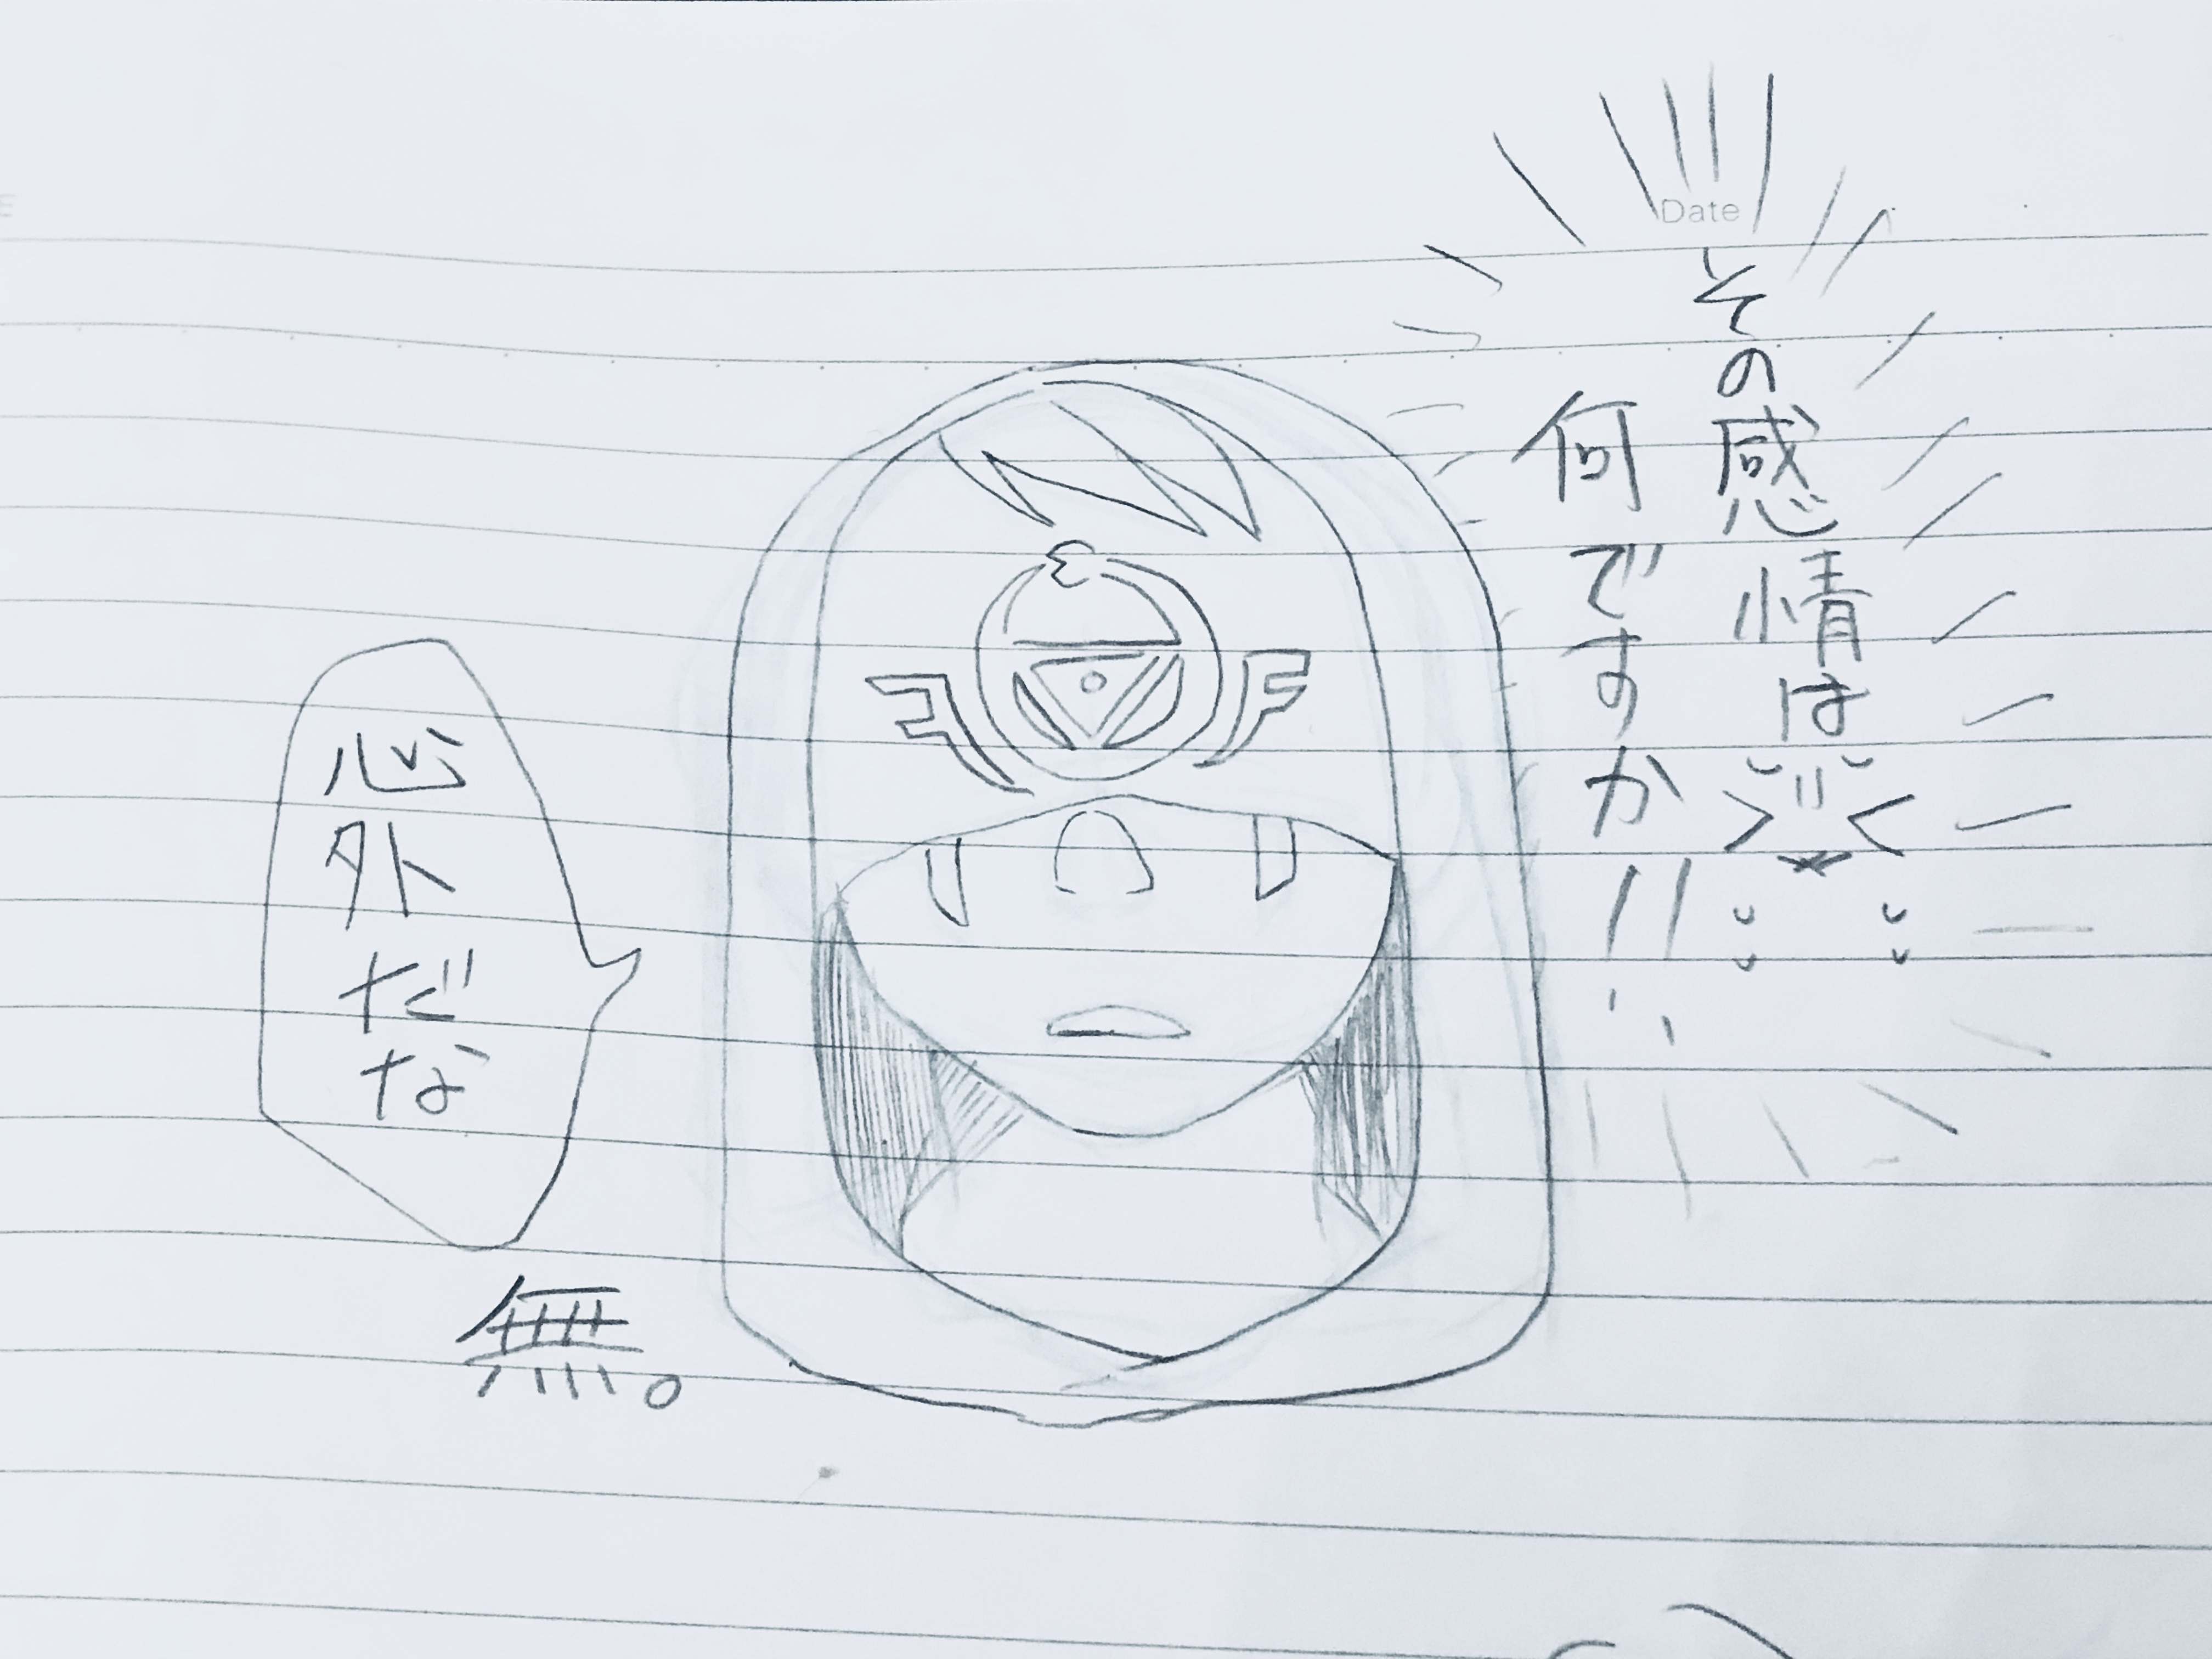 Date
その感情は
何ですか!!
心外だな
無。